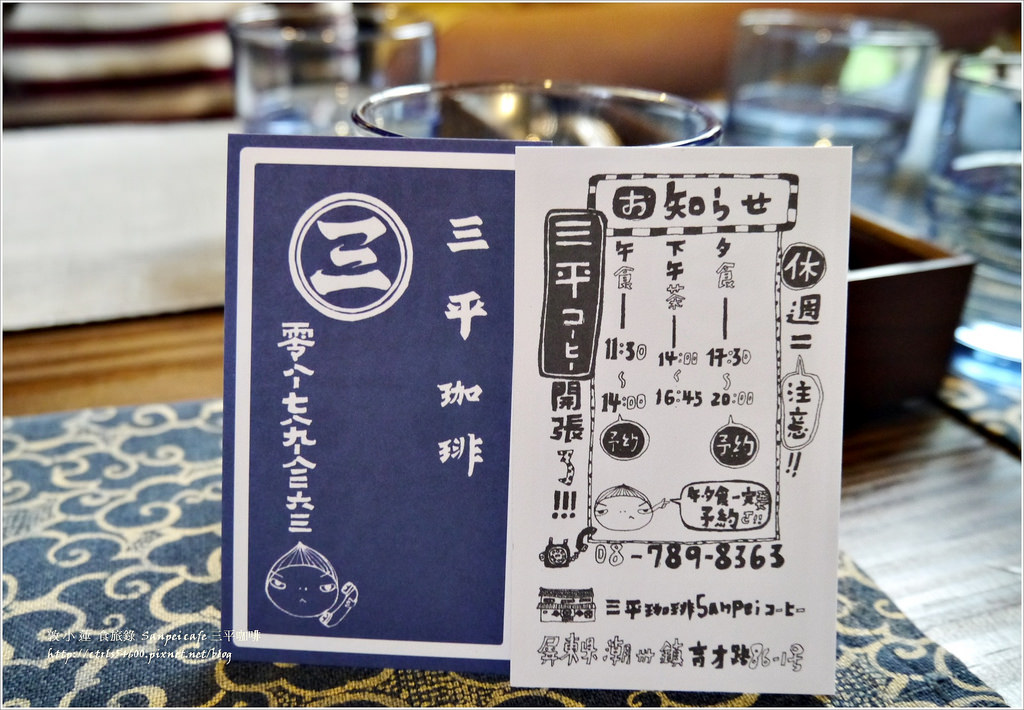 三
三平珈琲
零八-七八九八三六三
お知らせ
三平コーヒー開張了!!!
午食
11:30
~
14:00
予約
下午茶
14:00
~
16:45
夕食
17:30
~
20:00
予約
休週二
注意!!
午.夕食一定要
予約
08-789-8363
三平珈琲Sanpeiコーヒー
屏東県潮州鎮育才路86-1号
小蓮 食旅錄 Sanpei cafe 三平咖啡